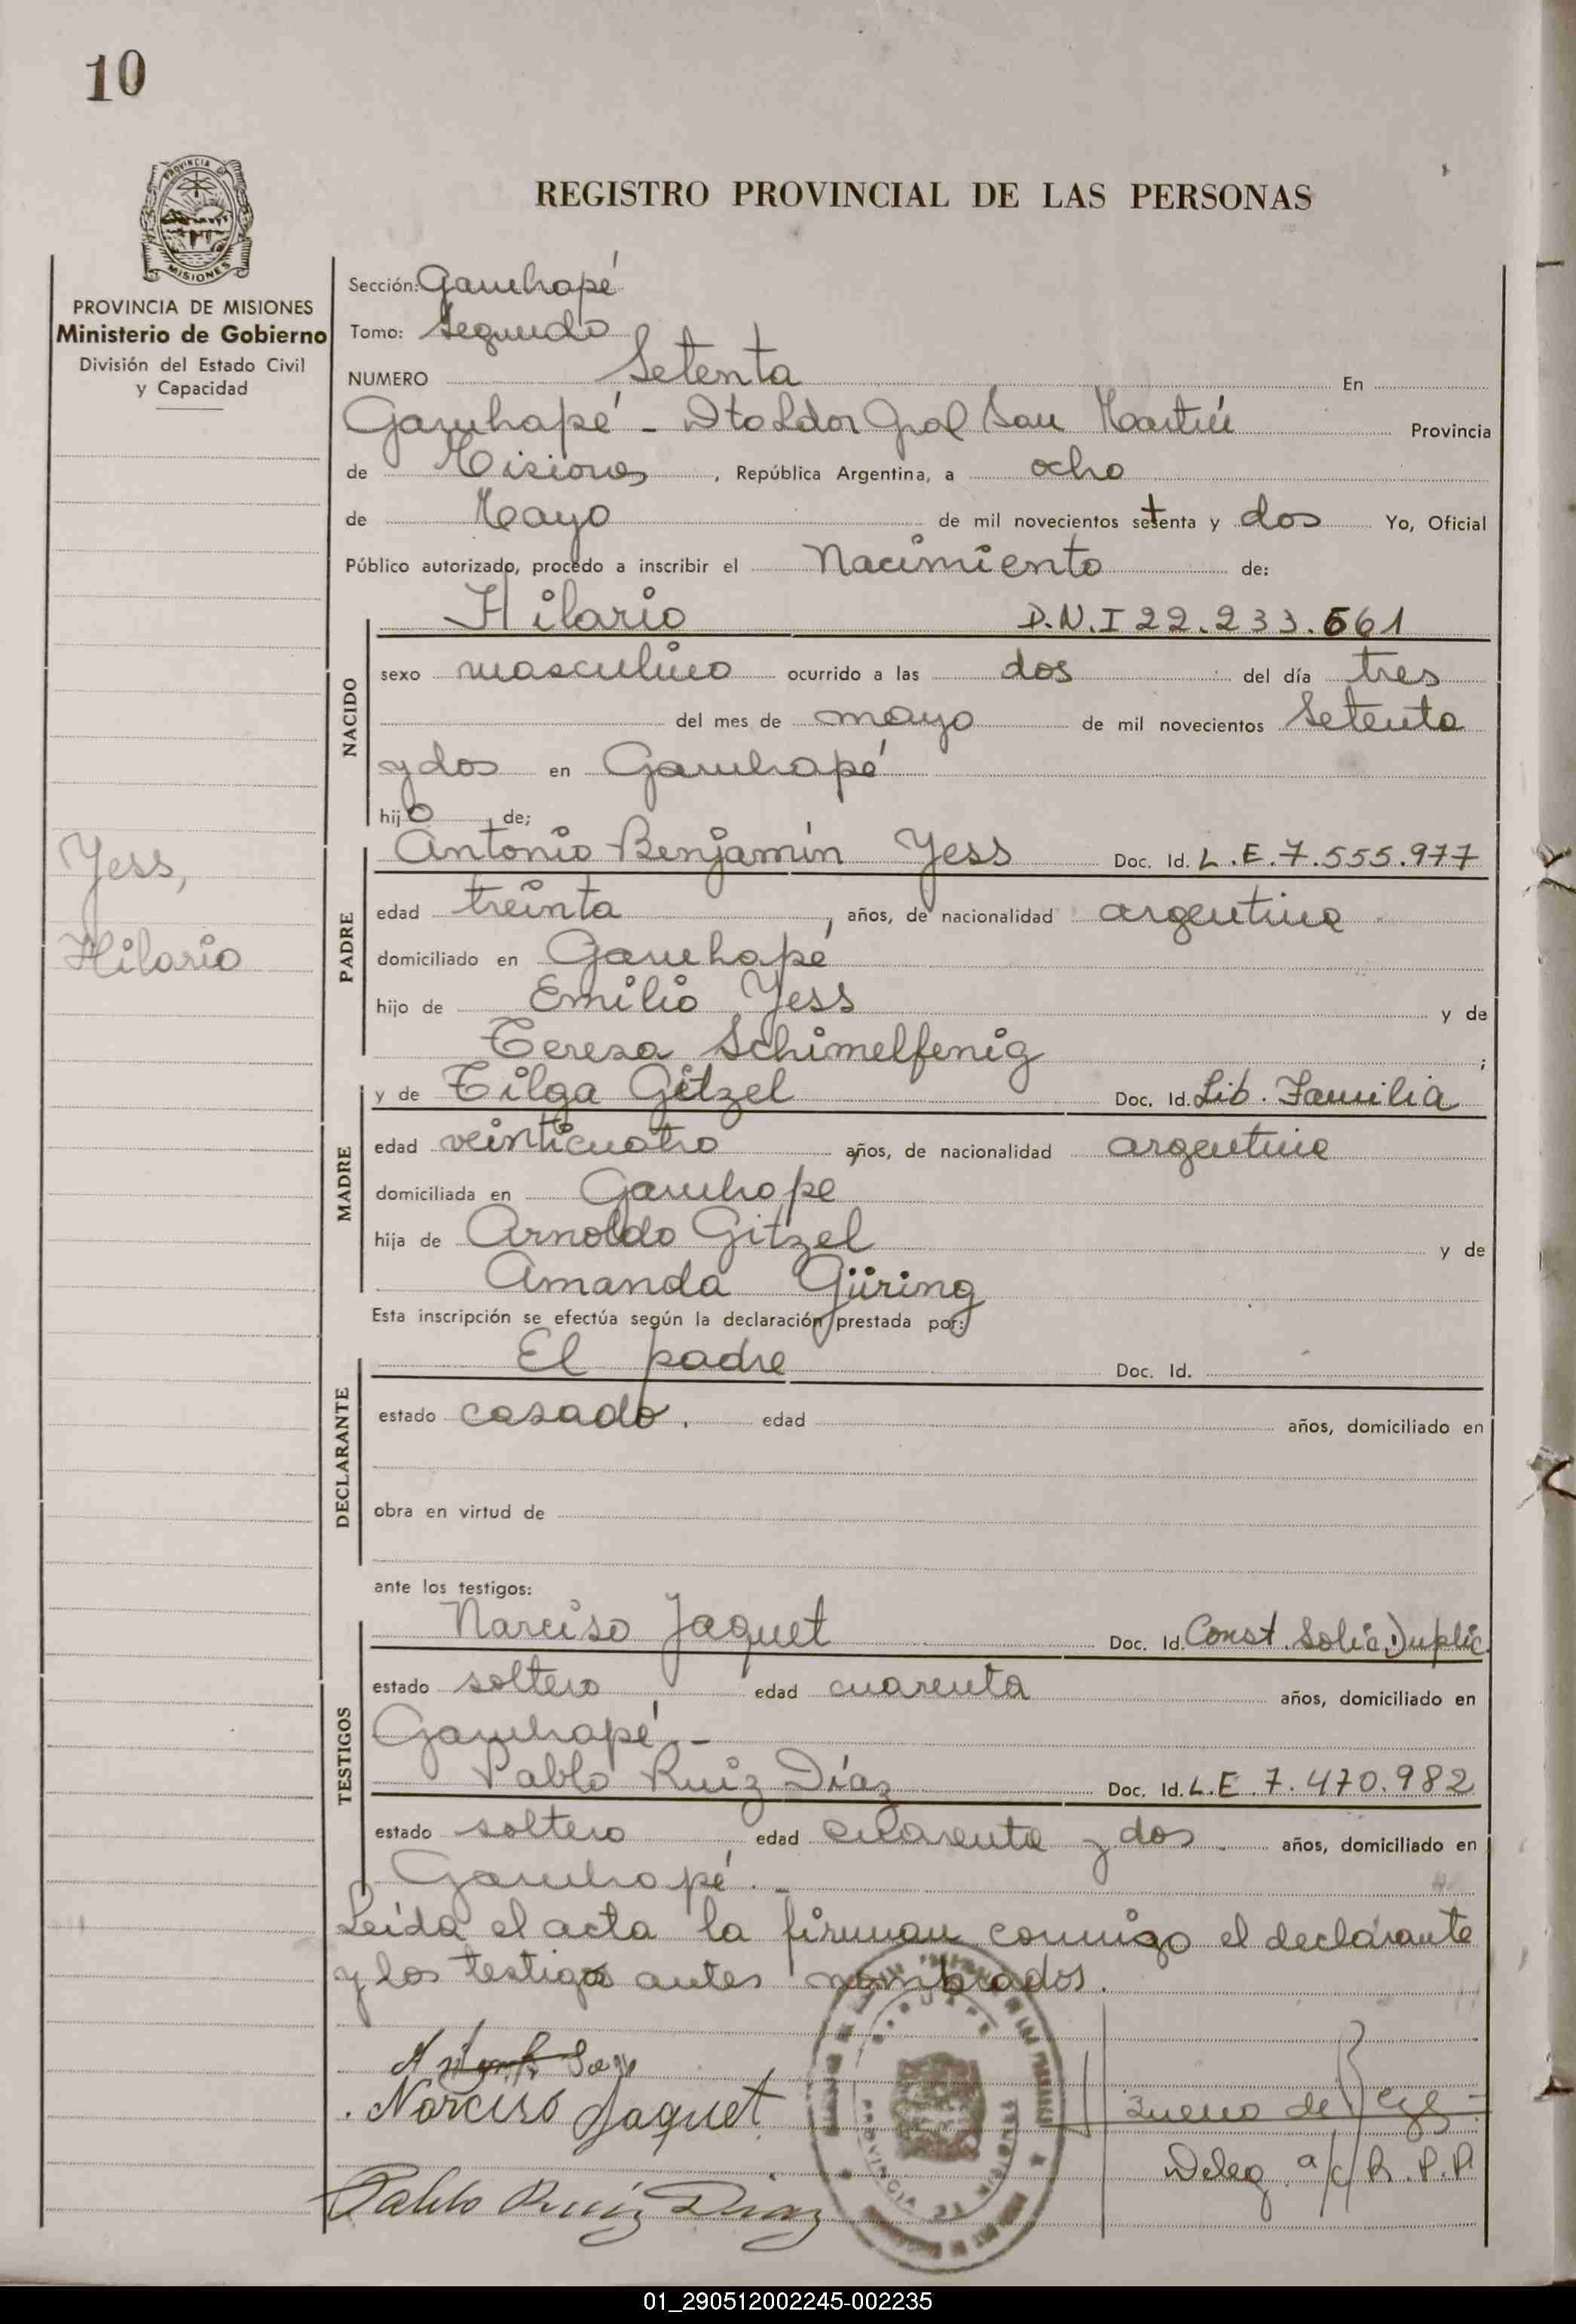 10
PROVINCIA DE MISIONES
Ministerio de Gobierno
División del Estado Civil
y Capacidad
REGISTRO PROVINCIAL DE LAS PERSONAS
Sección: Garuhapé
Tomo: Segundo
NUMERO Setenta En
Garuhapé - Dto Ldor Gral San Martín Provincia
de Misiones, República Argentina, a ocho
de Mayo de mil novecientos setenta y dos Yo, Oficial
Público autorizado, procedo a inscribir el Nacimiento de:
Hilario D.N.I 22.233.661
NACIDO
sexo masculino ocurrido a las dos del día tres
del mes de mayo de mil novecientos setenta
y dos en Garuhapé
hijo de;
Yess,
Hilario
PADRE
Antonio Benjamín Yess Doc. Id. L.E. 7.555.977
edad treinta, años, de nacionalidad argentina
domiciliado en Garuhapé
hijo de Emilio Yess y de
Teresa Schimelfenig;
MADRE
y de Tilga Gitzel Doc. Id. Lib. Familia
edad veinticuatro años, de nacionalidad argentina
domiciliada en Garuhape
hija de Arnoldo Gitzel y de
Amanda Güring
Esta inscripción se efectúa según la declaración prestada por:
DECLARANTE
El padre Doc. Id.
estado casado. edad años, domiciliado en
obra en virtud de
ante los testigos:
TESTIGOS
Narciso Jaquet Doc. Id. Const. Solic. Duplic.
estado soltero edad cuarenta años, domiciliado en
Garuhapé. -
Pablo Ruiz Díaz Doc. Id. L.E. 7.470.982
estado soltero edad cuarenta y dos años, domiciliado en
Garuhapé. -
Leída el acta la firman conmigo el declarante
y los testigos antes nombrados.
Narciso Jaquet
Pablo Ruiz Diaz
Deleg a/c R.P.P
PROVINCIA DE
01_290512002245-002235